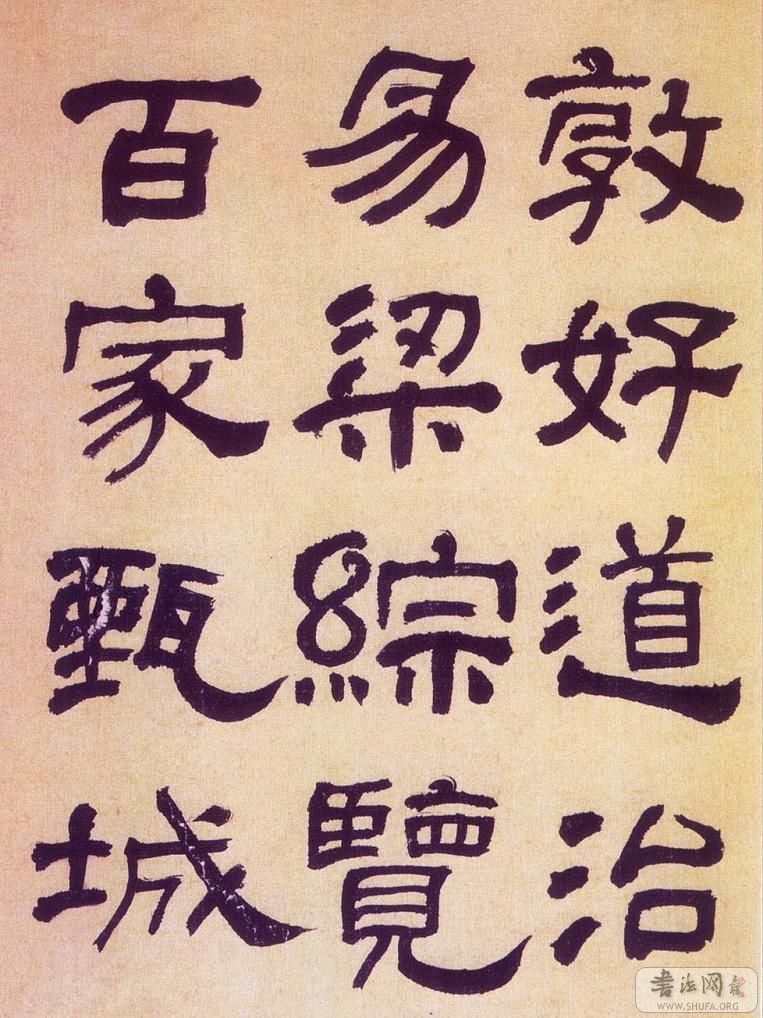 敦好道治
易梁綜覽
百家甄城
書法网
WWW.SHUFA.ORG